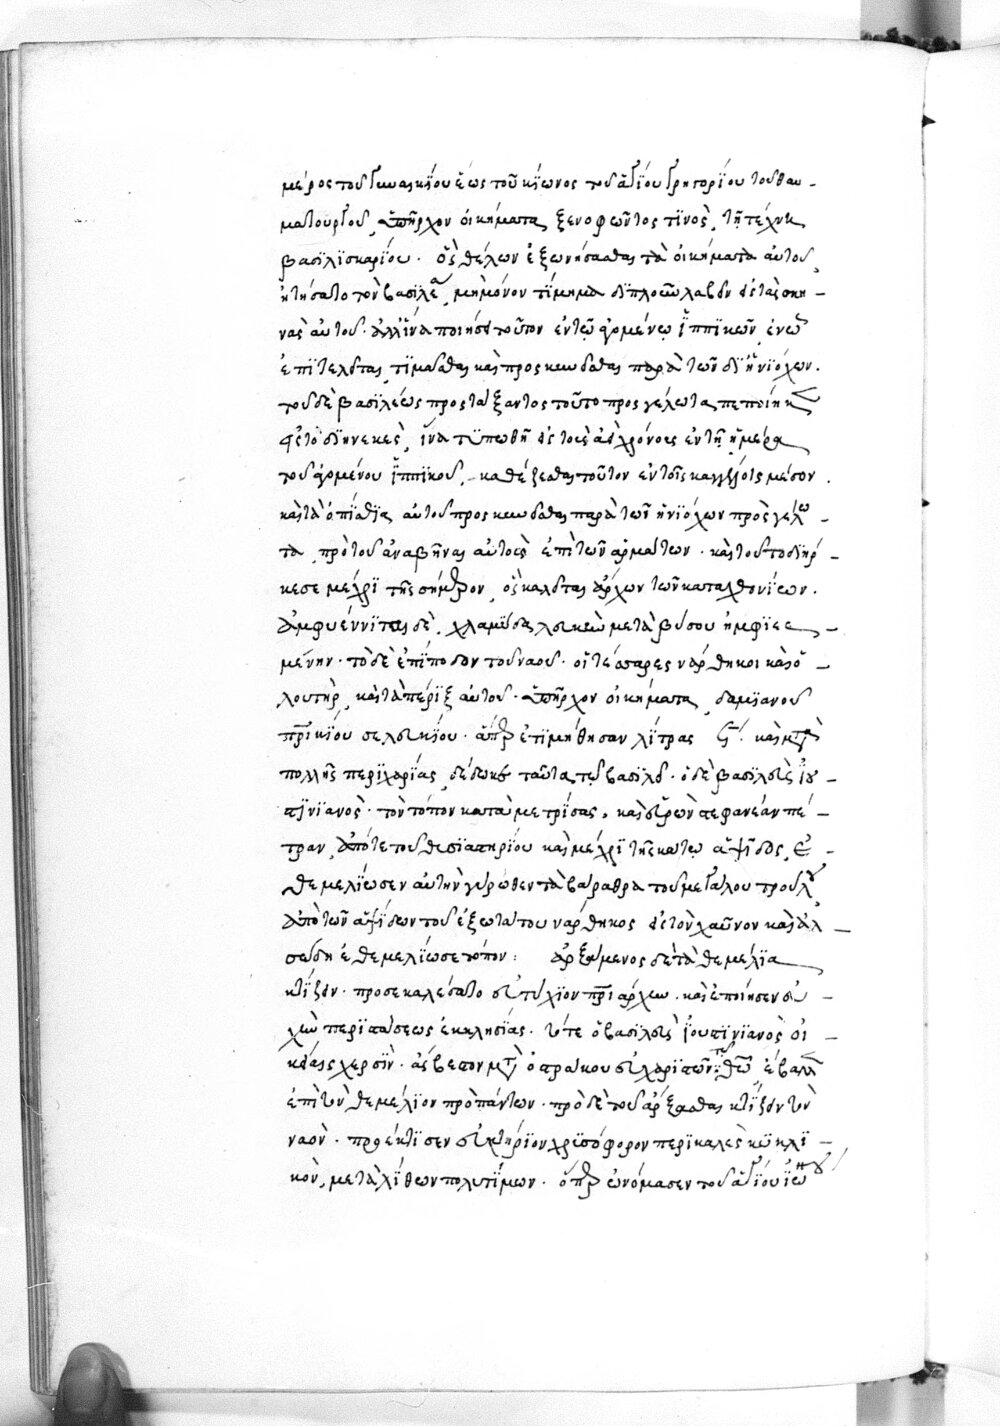 μέρος τοῦ γυναικΐου ἕως τοῦ κΐωνος τοῦ ἁγΐου γρηγορΐου τοῦ θαυ-
ματουργοῦ, ὑπῆρχον οἰκήματα ξενοφῶντος τϊνὸς, τῇ τέχνη
βασϊλισκαρΐου. ὃς θέλων ἐξωνήσασθαι τὰ οἰκήματα αὐτοῦ,
ἠτήσατο τὸν βασιλέα, μὴ μόνον τΐμημα δϊπλοῦν λαβεῖν εἰς τὰς σκη-
νὰς αὐτοῦ. ἀλλ' ἵνα ποιήσει τοῦτον ἐν τῷ ὁρμένῳ ἱππϊκῶν, ἐν ᾧ
ἐπϊτελεῖται, τϊμᾶσθαι καὶ προσκυνεῖσθαι παρὰ τῶν δϊ ἡνϊόχων.
τοῦ δὲ βασϊλέως προστάξαντος τοῦτο πρὸς γέλωτα πεποίηκεν
εἰς τὸ δϊηνεκὲς, ἵνα τϋπωθῆ εἰς τοὺς ἀεὶ χρόνους ἐν τῇ ἡμέρα
τοῦ ὁρμένου ἱππϊκοῦ, καθέζεσθαι τοῦτον ἐν τοῖς καγγέλοις μέσον.
καὶ τὰ ὀπΐσθϊα αὐτοῦ προσκυνεῖσθαι παρὰ τῶν ἡνϊόχων πρὸς γέλω-
τα, πρὸ τοῦ ἀναβῆναι αὐτοὺς ἐπὶ τῶν ἁρμάτων. καὶ τοῦτο διήρ-
κεσε μέχρϊ τῆς σήμερον, ὃς καλεῖται ἄρχων τῶν καταχθονΐων.
ἀμφϋέννϊται δὲ, χλαμΰδα λευκὴν μετὰ βΰσου ἠμφϊεσ-
μένην. τὸ δὲ ἐπΐπεδον τοῦ ναοῦ. οἱ τέσσαρες νάρθηκοι καὶ ὁ
λουτὴρ, καὶ τὰ πέρϊξ αὐτοῦ. ὑπῆρχον οἰκήματα, δαμϊανοῦ
πατρικΐου σελευκΐου. ἅπερ ἐτϊμήθησαν λΐτρας καὶ μετὰ
πολλῆς περϊχαρΐας, δέδωκε ταῦτα τῷ βασϊλεῖ. ὁ δὲ βασϊλεὺς ἰου-
στϊνϊανὸς. τὸν τόπον καταμετρΐσας, καὶ εὑρὼν στεφανέαν πέ-
τραν, ἀπό τε τοῦ θυσϊαστηρΐου καὶ μέχρϊ τῆς κάτω ἀψΐδος, ἐ-
θεμελΐωσεν αὐτὴν γΰρωθεν τὰ βάραθρα τοῦ μεγάλου τρούλου,
ἀπὸ τῶν ἀψΐδων τοῦ ἐξωτάτου νάρθηκος εἰς τὸν χαῦνον καὶ ἀλ-
σώδη ἐθεμελΐωσε τόπον: ἀρξάμενος δὲ τὰ θεμέλϊα
κτΐζειν. προσεκαλέσατο εὐτΰχϊον πατριάρχην. καὶ ἐποίησεν εὐ-
χὴν περϊ συστάσεως ἐκκλησΐας. τότε ὁ βασϊλεὺς ἰουστϊνϊανὸς οἰ-
κείαις χερσΐν. ἀσβεστον μετὰ ὀστράκου εὐχαρϊστῶν τῷ θεῷ ἔβαλεν
ἐπὶ τὸν θεμέλϊον πρὸ πάντων. πρὸ δὲ τοῦ ἄρξασθαι κτΐζειν τὸν
ναὸν. προέκτϊσεν εὐκτήρϊον χρϋσόφορον περϊκαλὲς κϋκλϊ-
κὸν, μετὰ λΐθων πολυτΐμων. ὅπερ ὠνόμασεν τοῦ ἁγΐου ἰω